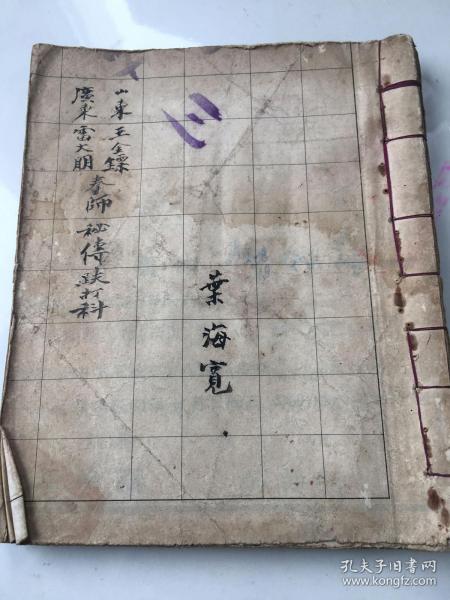 山東王金鏢
廣東雷大朋
春師秘傳跌打科
葉海寬
孔夫子旧书网
www.kongfz.com